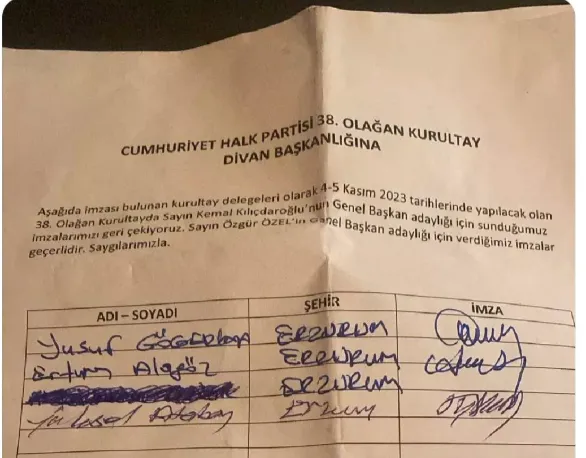 CUMHURİYET HALK PARTİSİ 38. OLAĞAN KURULTAY
DİVAN BAŞKANLIĞINA
Aşağıda imzası bulunan kurultay delegeleri olarak 4-5 Kasım 2023 tarihlerinde yapılacak olan
38. Olağan Kurultayda Sayın Kemal Kılıçdaroğlu'nun Genel Başkan adaylığı için sunduğumuz
imzalarımızı geri çekiyoruz. Sayın Özgür ÖZEL'in Genel Başkan adaylığı için verdiğimiz imzalar
geçerlidir. Saygılarımızla.
ADI – SOYADI ŞEHİR İMZA
Yusuf ERZURUM
Alagöz ERZURUM
ERZURUM
Erzurum